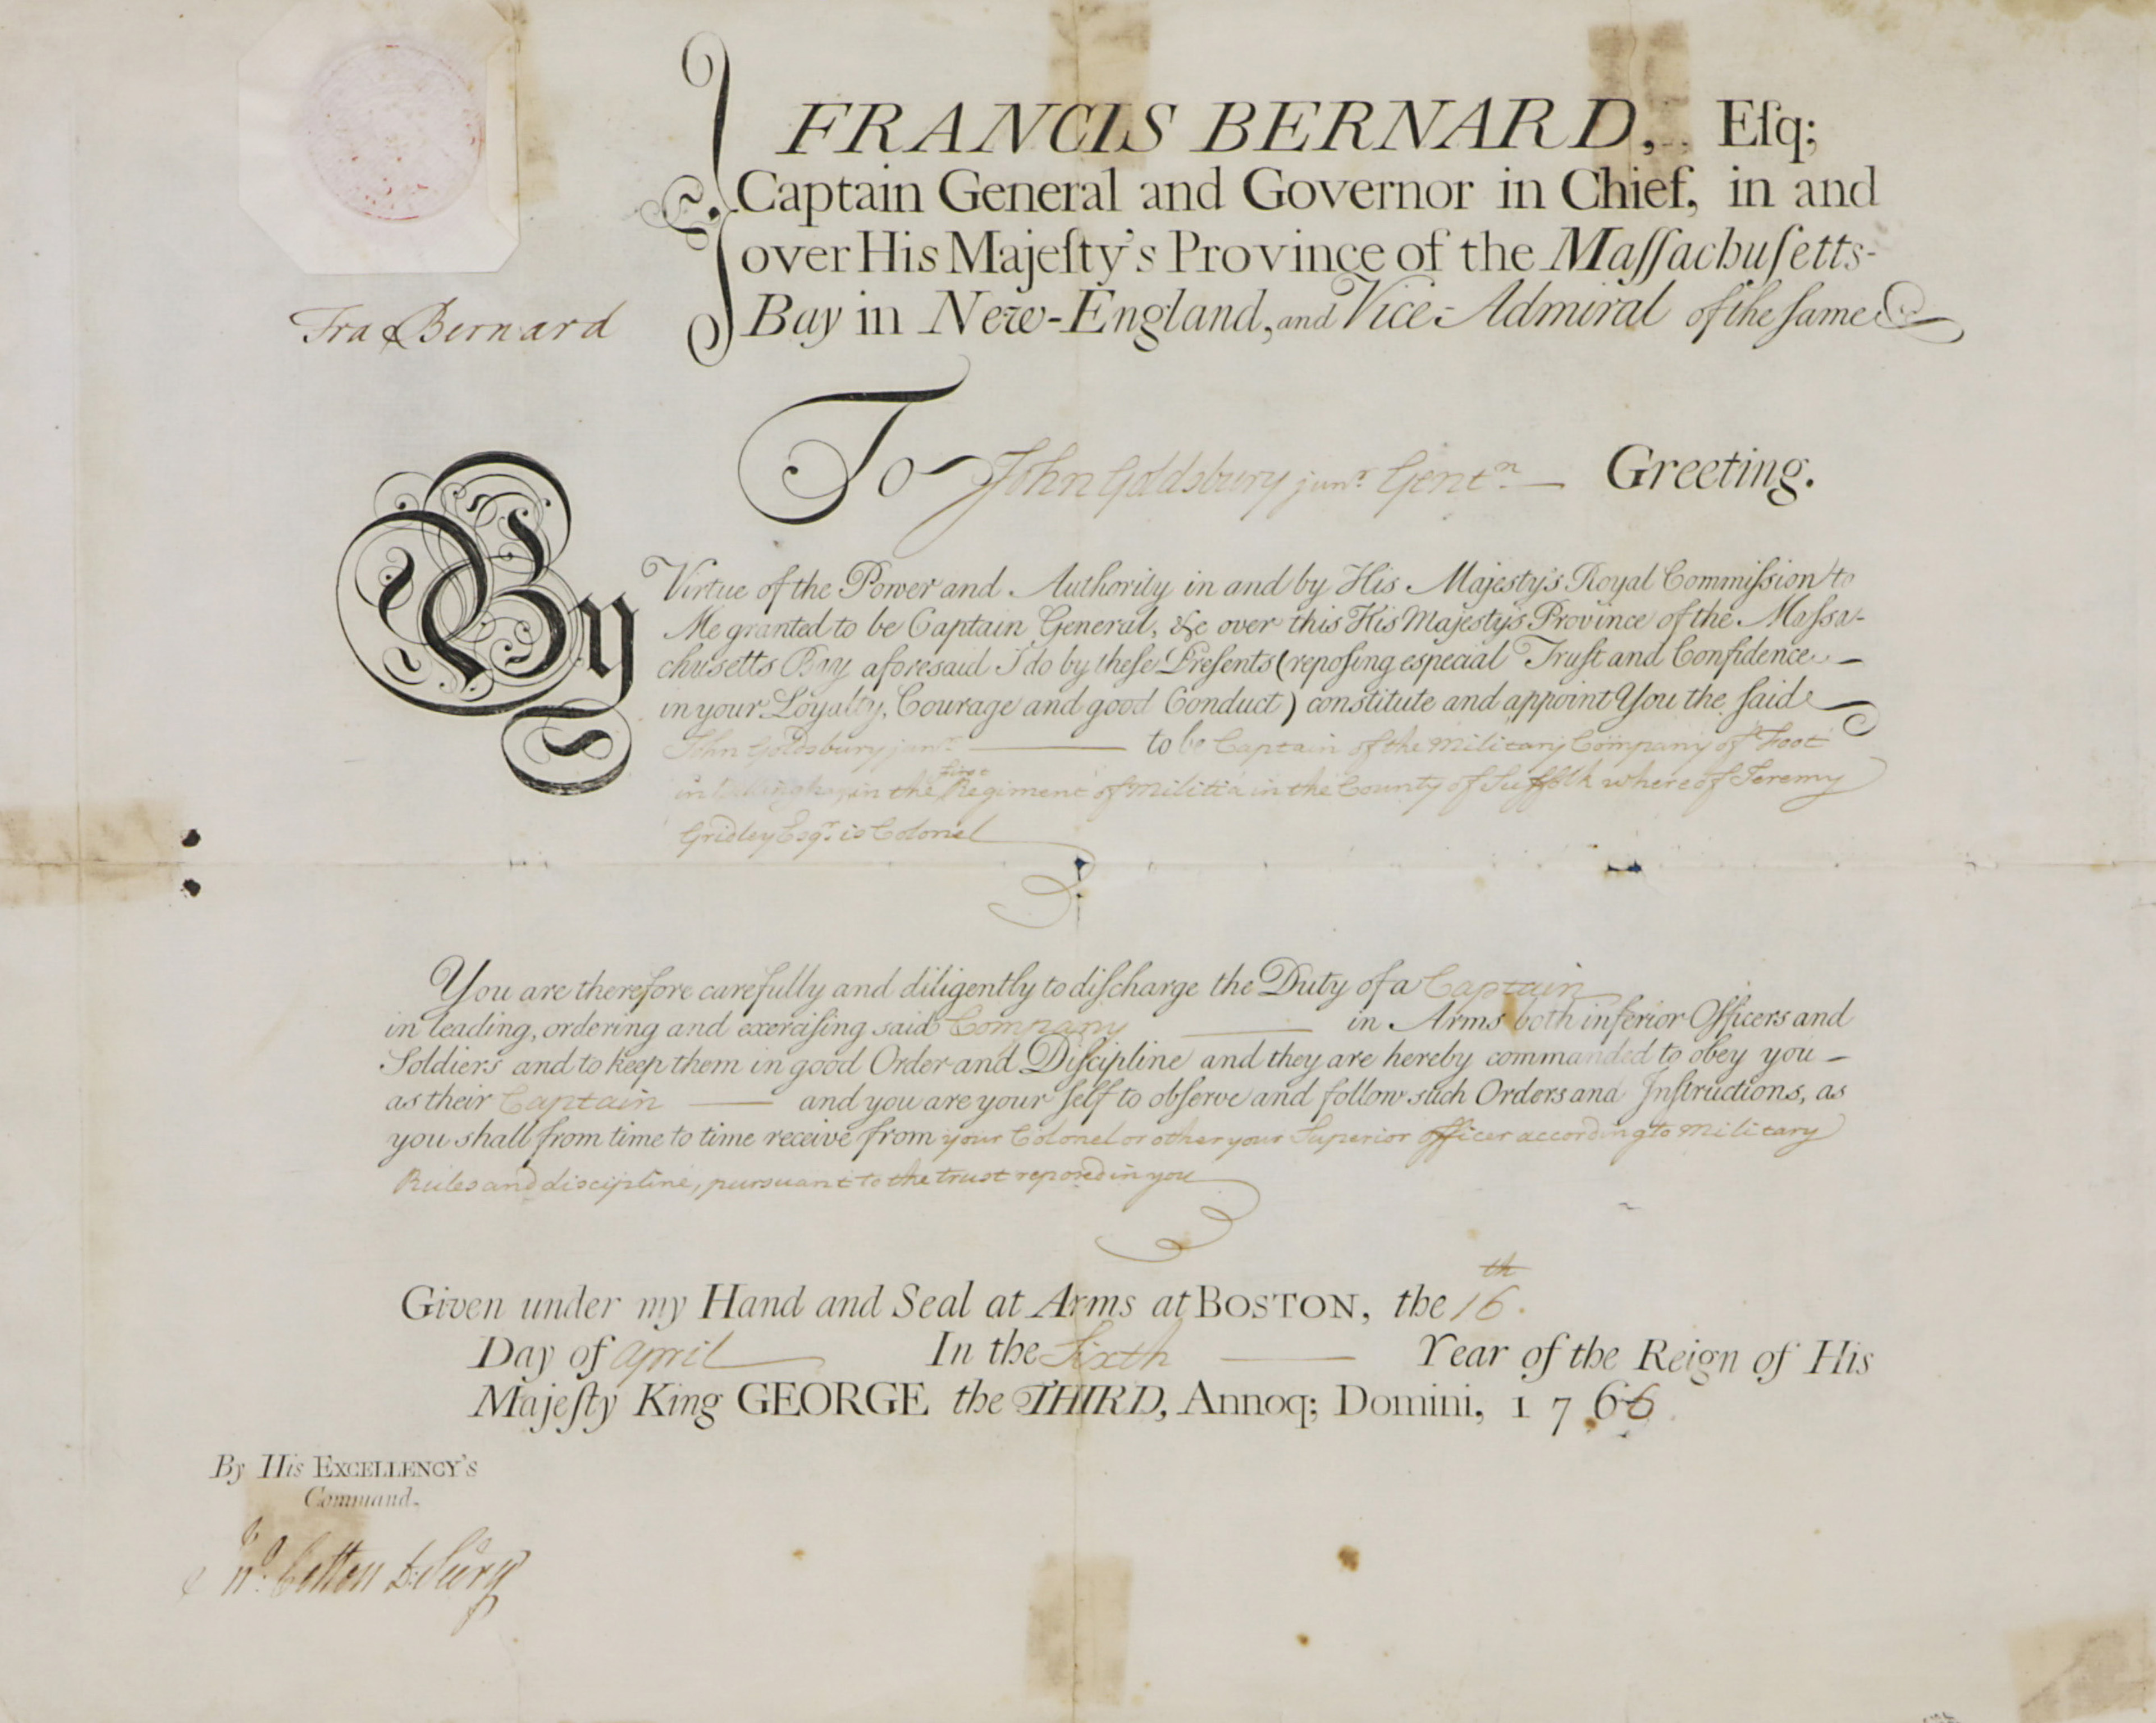 FRANCIS BERNARD, Eſq;
Captain General and Governor in Chief, in and
over His Majeſty's Province of the Maſſachuſetts-
Bay in New-England, and Vice-Admiral of the ſame
Fra Bernard
To John Goldsbury junr. Gentn. Greeting.
By Virtue of the Power and Authority in and by His Majesty's Royal Commiſsion to
Me granted to be Captain General, &c over this His Majesty's Province of the Maſsa-
chusetts Bay aforesaid I do by theſe Preſents (repoſing especial Truſt and Confidence
in your Loyalty, Courage and good Conduct) constitute and appoint You the ſaid
John Goldsbury junr. to be Captain of the Military Company of Foot
in the first Regiment of Militia in the County of Suffolk whereof Jeremy
Gridley Esqr. is Colonel
You are therefore carefully and diligently to diſcharge the Duty of a Captain
in leading, ordering and exerciſing said Company in Arms both inferior Officers and
Soldiers and to keep them in good Order and Diſcipline and they are hereby commanded to obey you
as their Captain and you are your ſelf to obſerve and follow such Orders and Inſtructions, as
you shall from time to time receive from your Colonel or other your Superior officer according to military
Rules and discipline, pursuant to the trust reposed in you
Given under my Hand and Seal at Arms at BOSTON, the 16th.
Day of April In the Sixth Year of the Reign of His
Majeſty King GEORGE the THIRD, Annoq; Domini, 1766
By His EXCELLENCY's
Command.
Jno. Cotton D. Secry